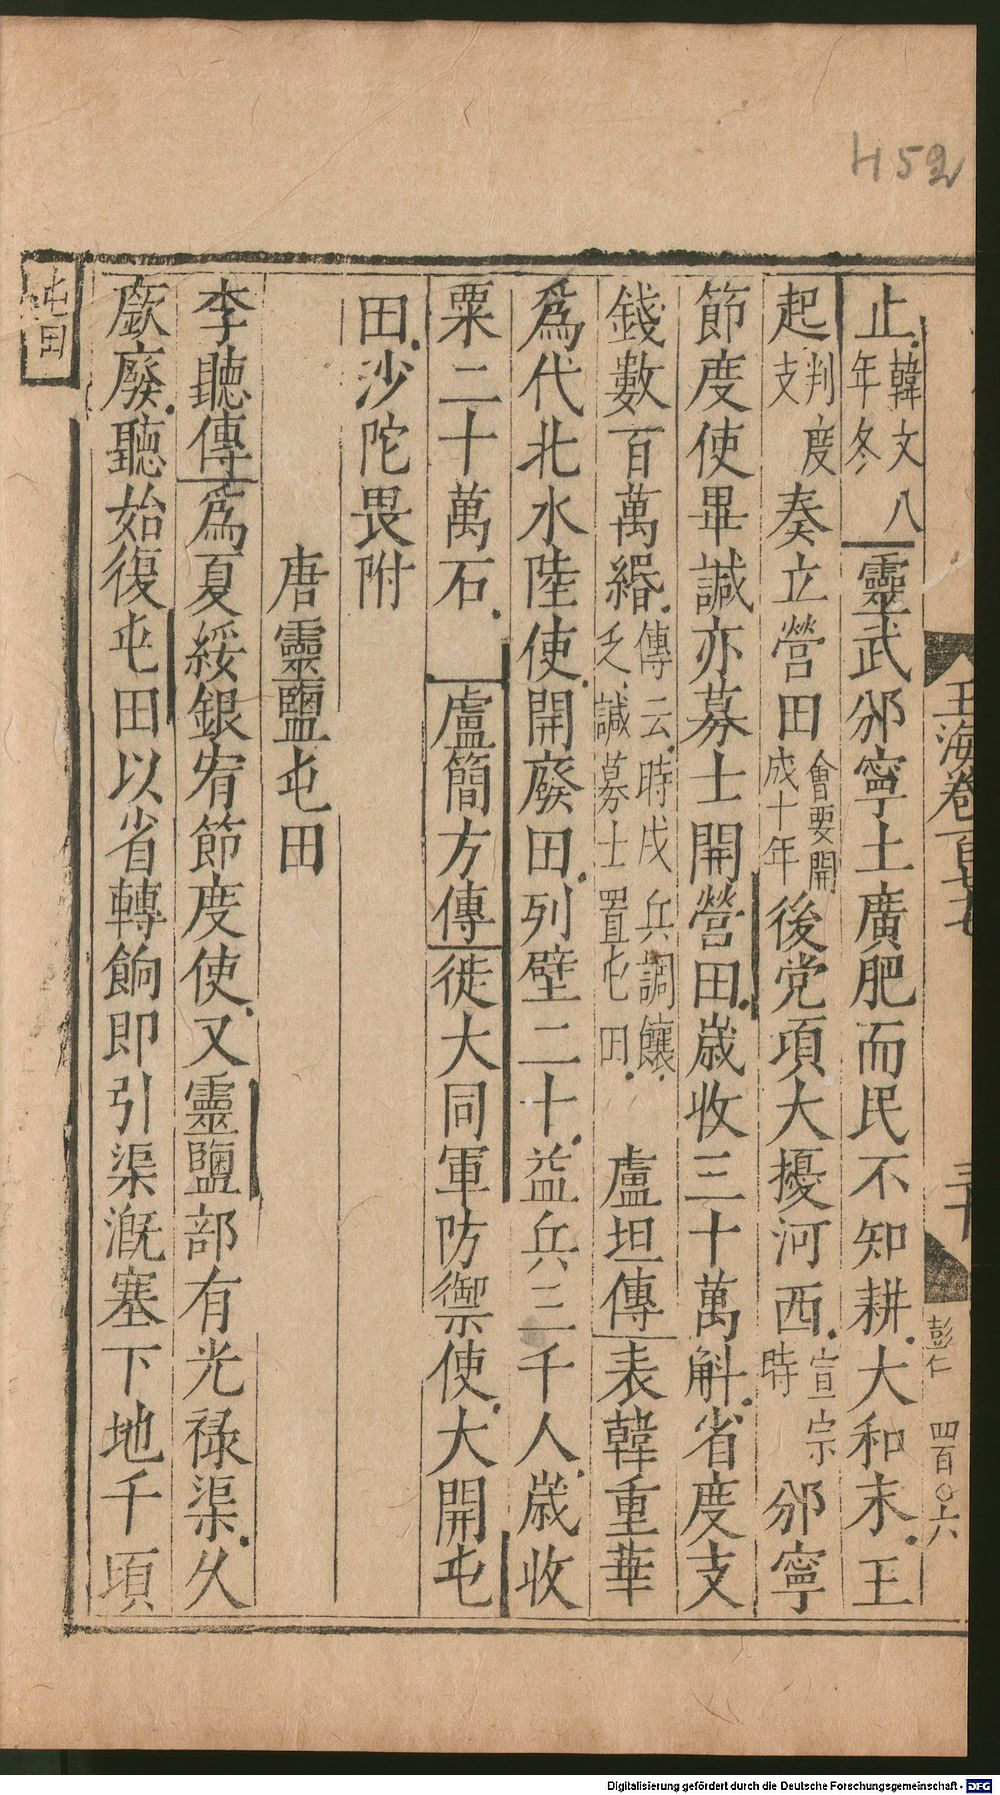 H52
玉海卷百七七
三十
彭仁
四百〇六
止韓文八年冬靈武邠寧土廣肥而民不知耕大和末王
起判度支奏立營田會要開成十年後党項大擾河西宣宗時邠寧
節度使畢諴亦募士開營田歲收三十萬斛省度支
錢數百萬緡傳云時戍兵調饟乏諴募士置屯田盧坦傳表韓重華
爲代北水陸使開廢田列壁二十益兵三千人歲收
粟二十萬石盧簡方傳徙大同軍防禦使大開屯
田沙陀畏附
唐靈鹽屯田
李聽傳爲夏綏銀宥節度使又靈鹽部有光祿渠久
廞廢聽始復屯田以省轉餉即引渠漑塞下地千頃
屯田
Digitalisierung gefördert durch die Deutsche Forschungsgemeinschaft - DFG